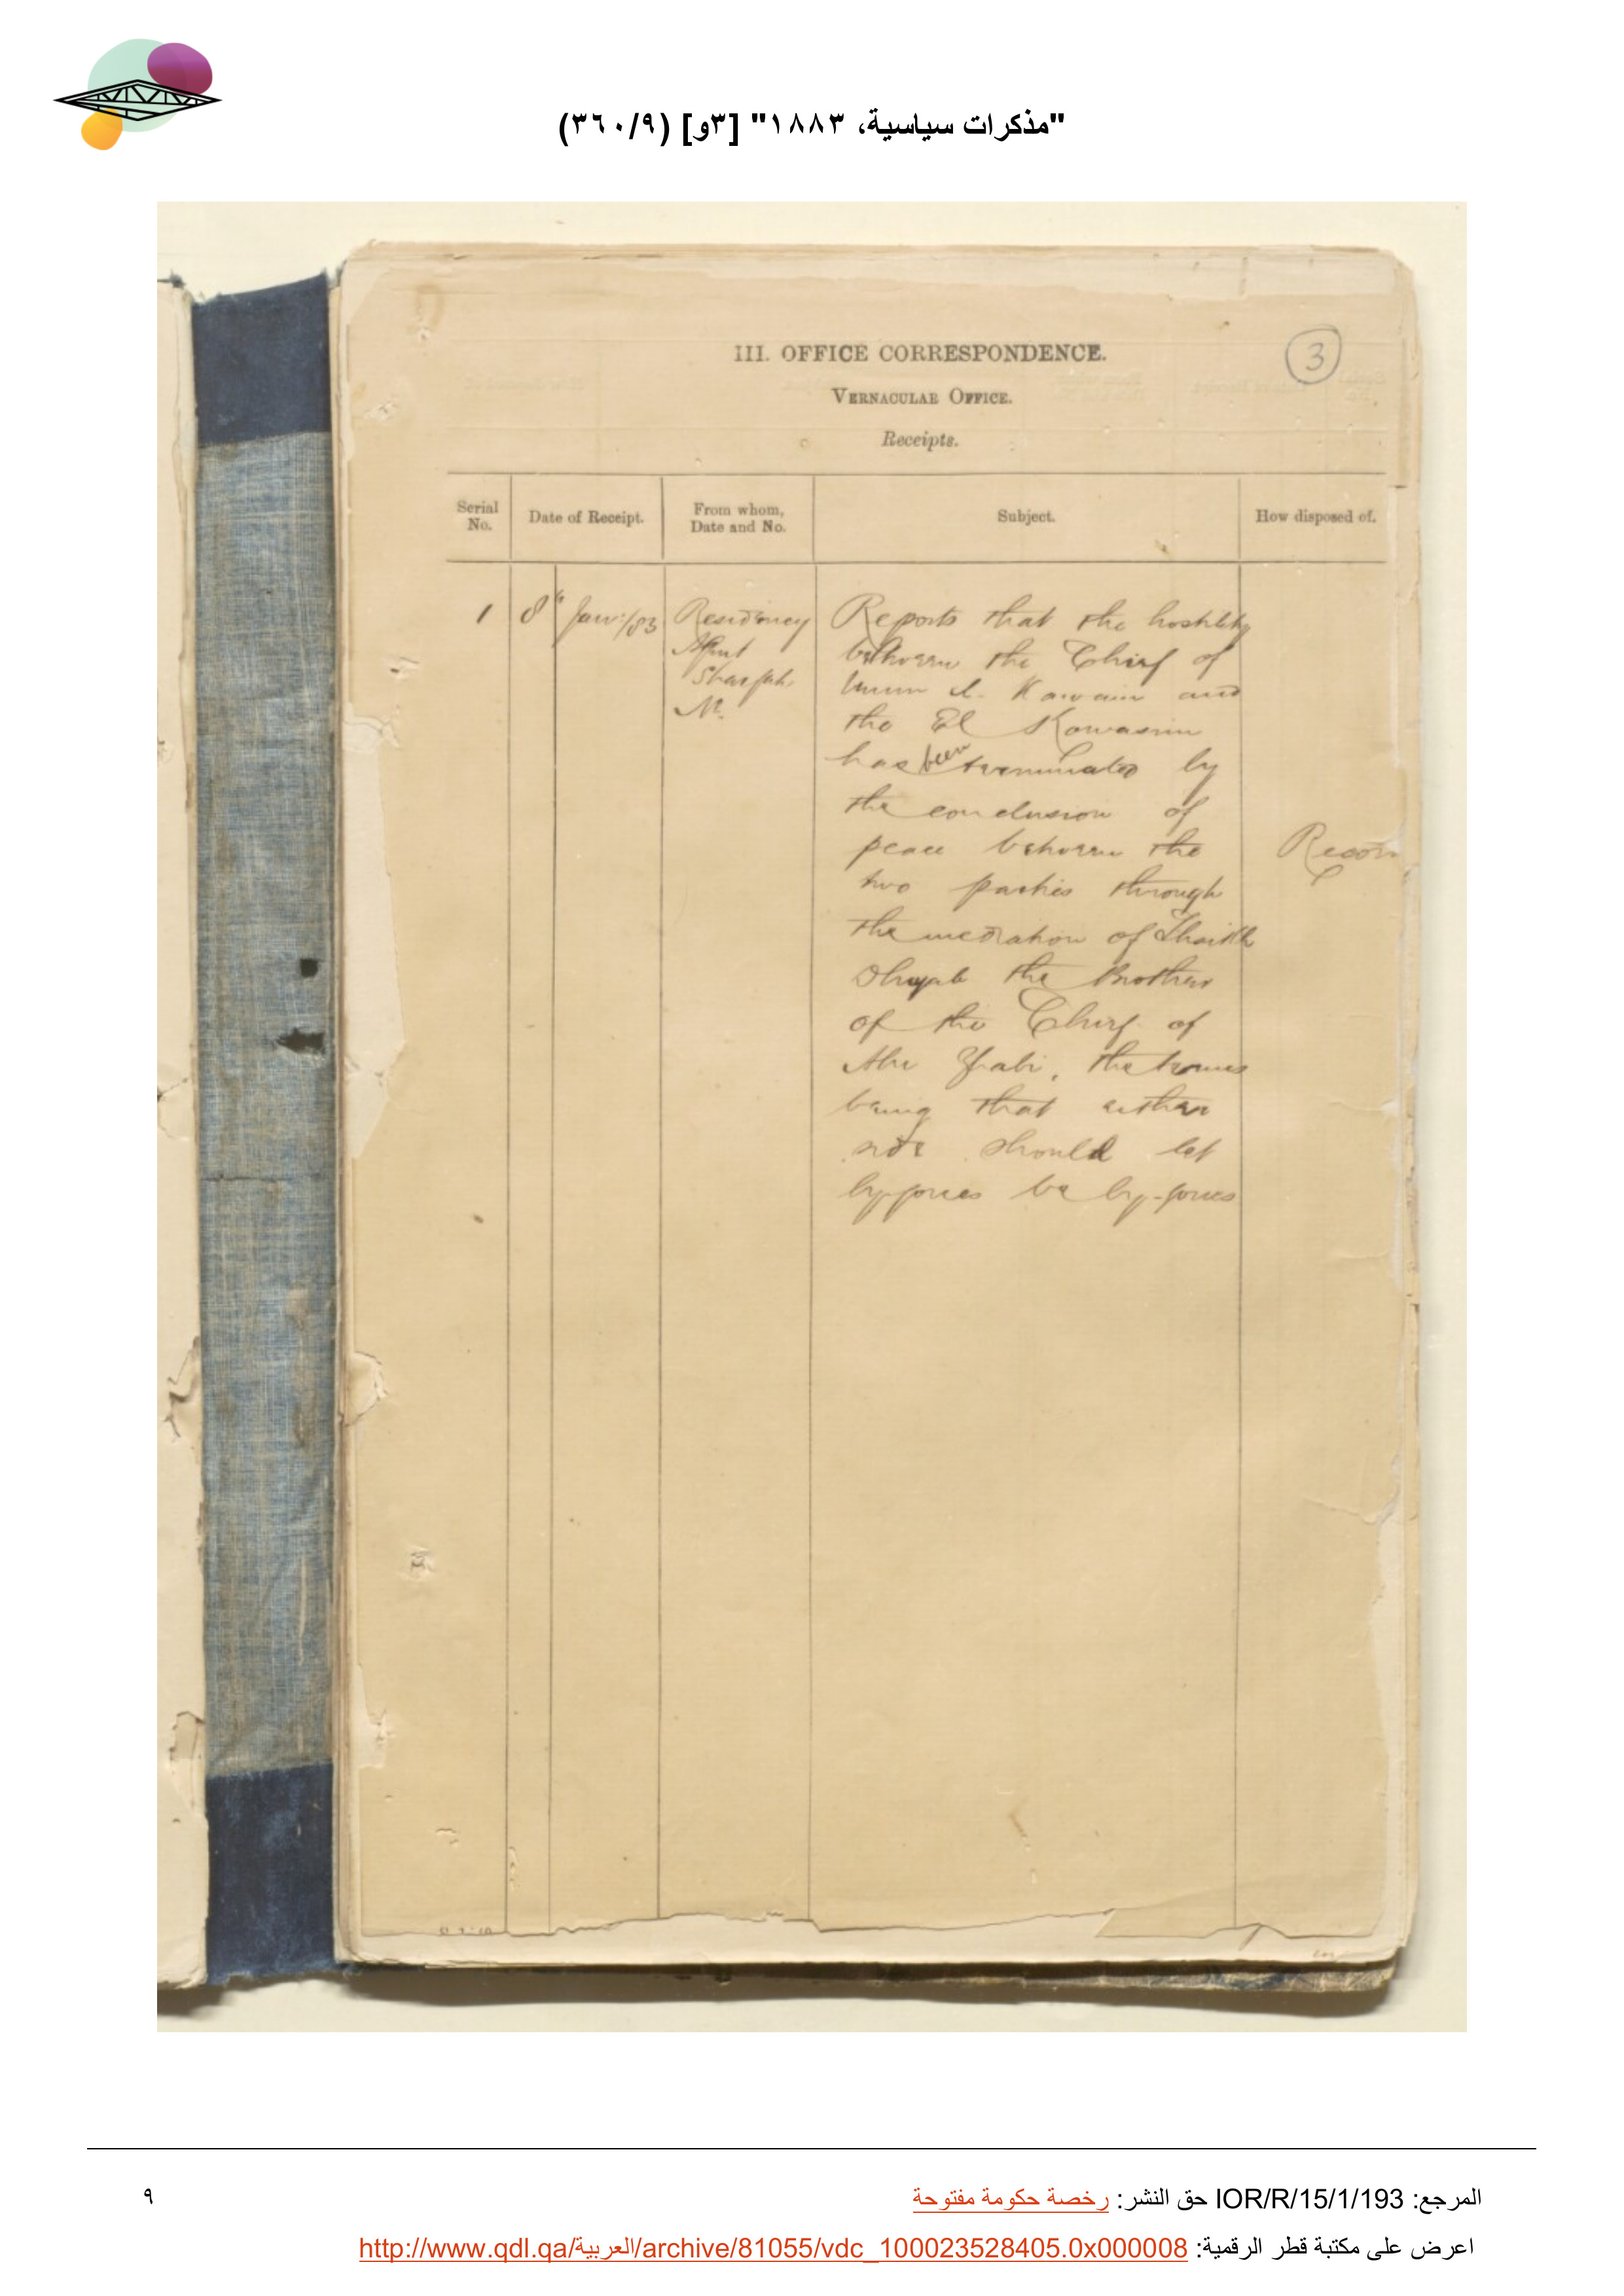 "مذكرات سياسية، ١٨٨٣" [٣و] (٣٦٠/٩)
3
III. OFFICE CORRESPONDENCE.
VERNACULAR OFFICE.
Receipts.
Serial No.
Date of Receipt.
From whom, Date and No.
Subject.
How disposed of.
1
8th Jan:/83
Residency
Agent
Shargah
No.
Reports that the hostility
between the Chief of
Umm el- Kawain and
the El Kowasim
has been terminated by
the conclusion of
peace between the
two parties through
the mediation of Shaikh
the Brother
of the Chief of
Abu Zhabi, the terms
being that either
side should let
by-gones be by-gones
Recor
المرجع: IOR/R/15/1/193 حق النشر: رخصة حكومة مفتوحة
٩
اعرض على مكتبة قطر الرقمية: http://www.qdl.qa/العربية/archive/81055/vdc_100023528405.0x000008